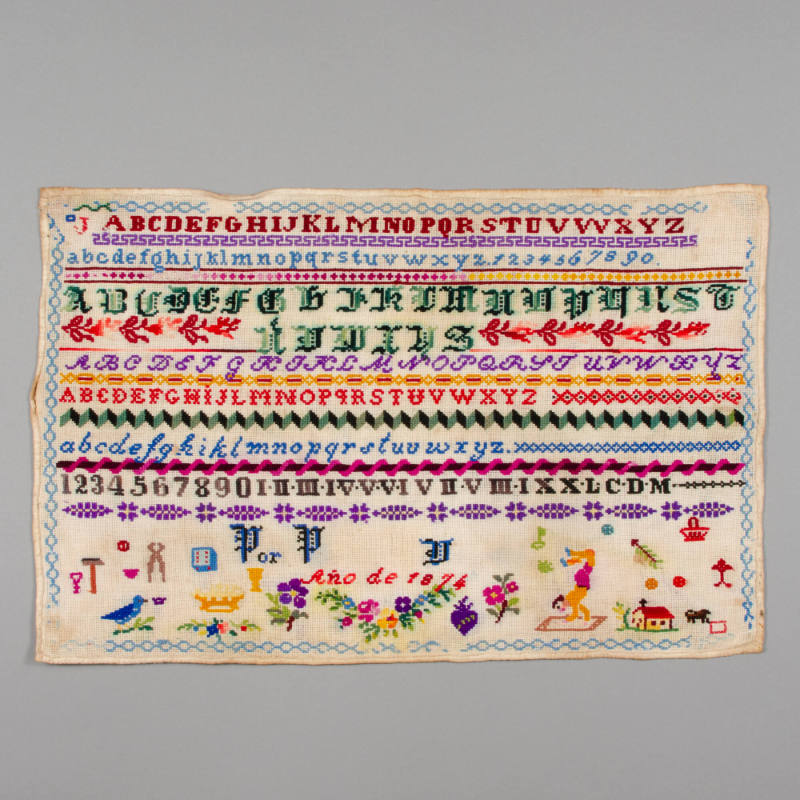 J ABCDEFGHIJKLMNOPQRSTUVWXYZ
abcdefghijklmnopqrstuvwxyz.1234567890.
ABCDEFGHIKLMNOPQRST
UVWXYZ
ABCDEFGHIKLMNOPQRSTUVWXYZ
ABCDEFGHIJLMNOPQRSTUVWXYZ
abcdefghiklmnopqrstuvwxyz.
1234567890 I·II·III·IV·V·VI·VII·VIII·IX·X·L·C·D·M
Por P D
Año de 1874